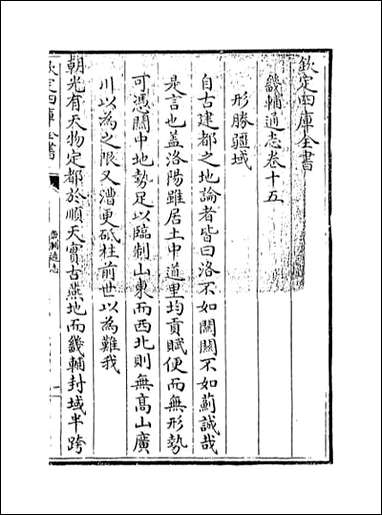 欽定四庫全書
畿輔通志卷十五
形勝疆域
自古建都之地論者皆曰洛不如關關不如薊誠哉
是言也蓋洛陽雖居土中道里均貢賦便而無形勢
可憑關中地勢足以臨制山東而西北則無髙山廣
川以為之限又漕更砥柱前世以為難我
朝光有天物定都於順天實古燕地而畿輔封域半跨
欽定四庫全書
畿輔通志